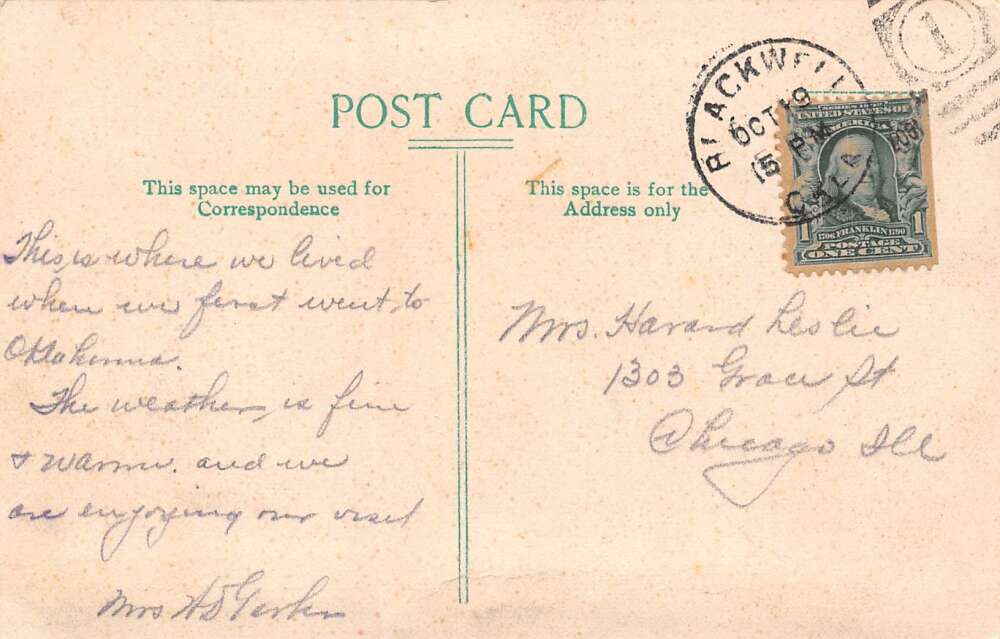 POST CARD
This space may be used for
Correspondence
This space is for the
Address only
BLACKWELL
OCT 19
5 PM
OKLA
1
SERIES 1902
UNITED STATES OF
AMERICA
1 1
1706 FRANKLIN 1790
POSTAGE
ONE CENT
This is where we lived
when we first went to
Oklahoma.
The weather is fine
& warm. and we
are enjoying our visit
Mrs H D
Mrs. Harard Leslie
1303 Grace St
Chicago Ill